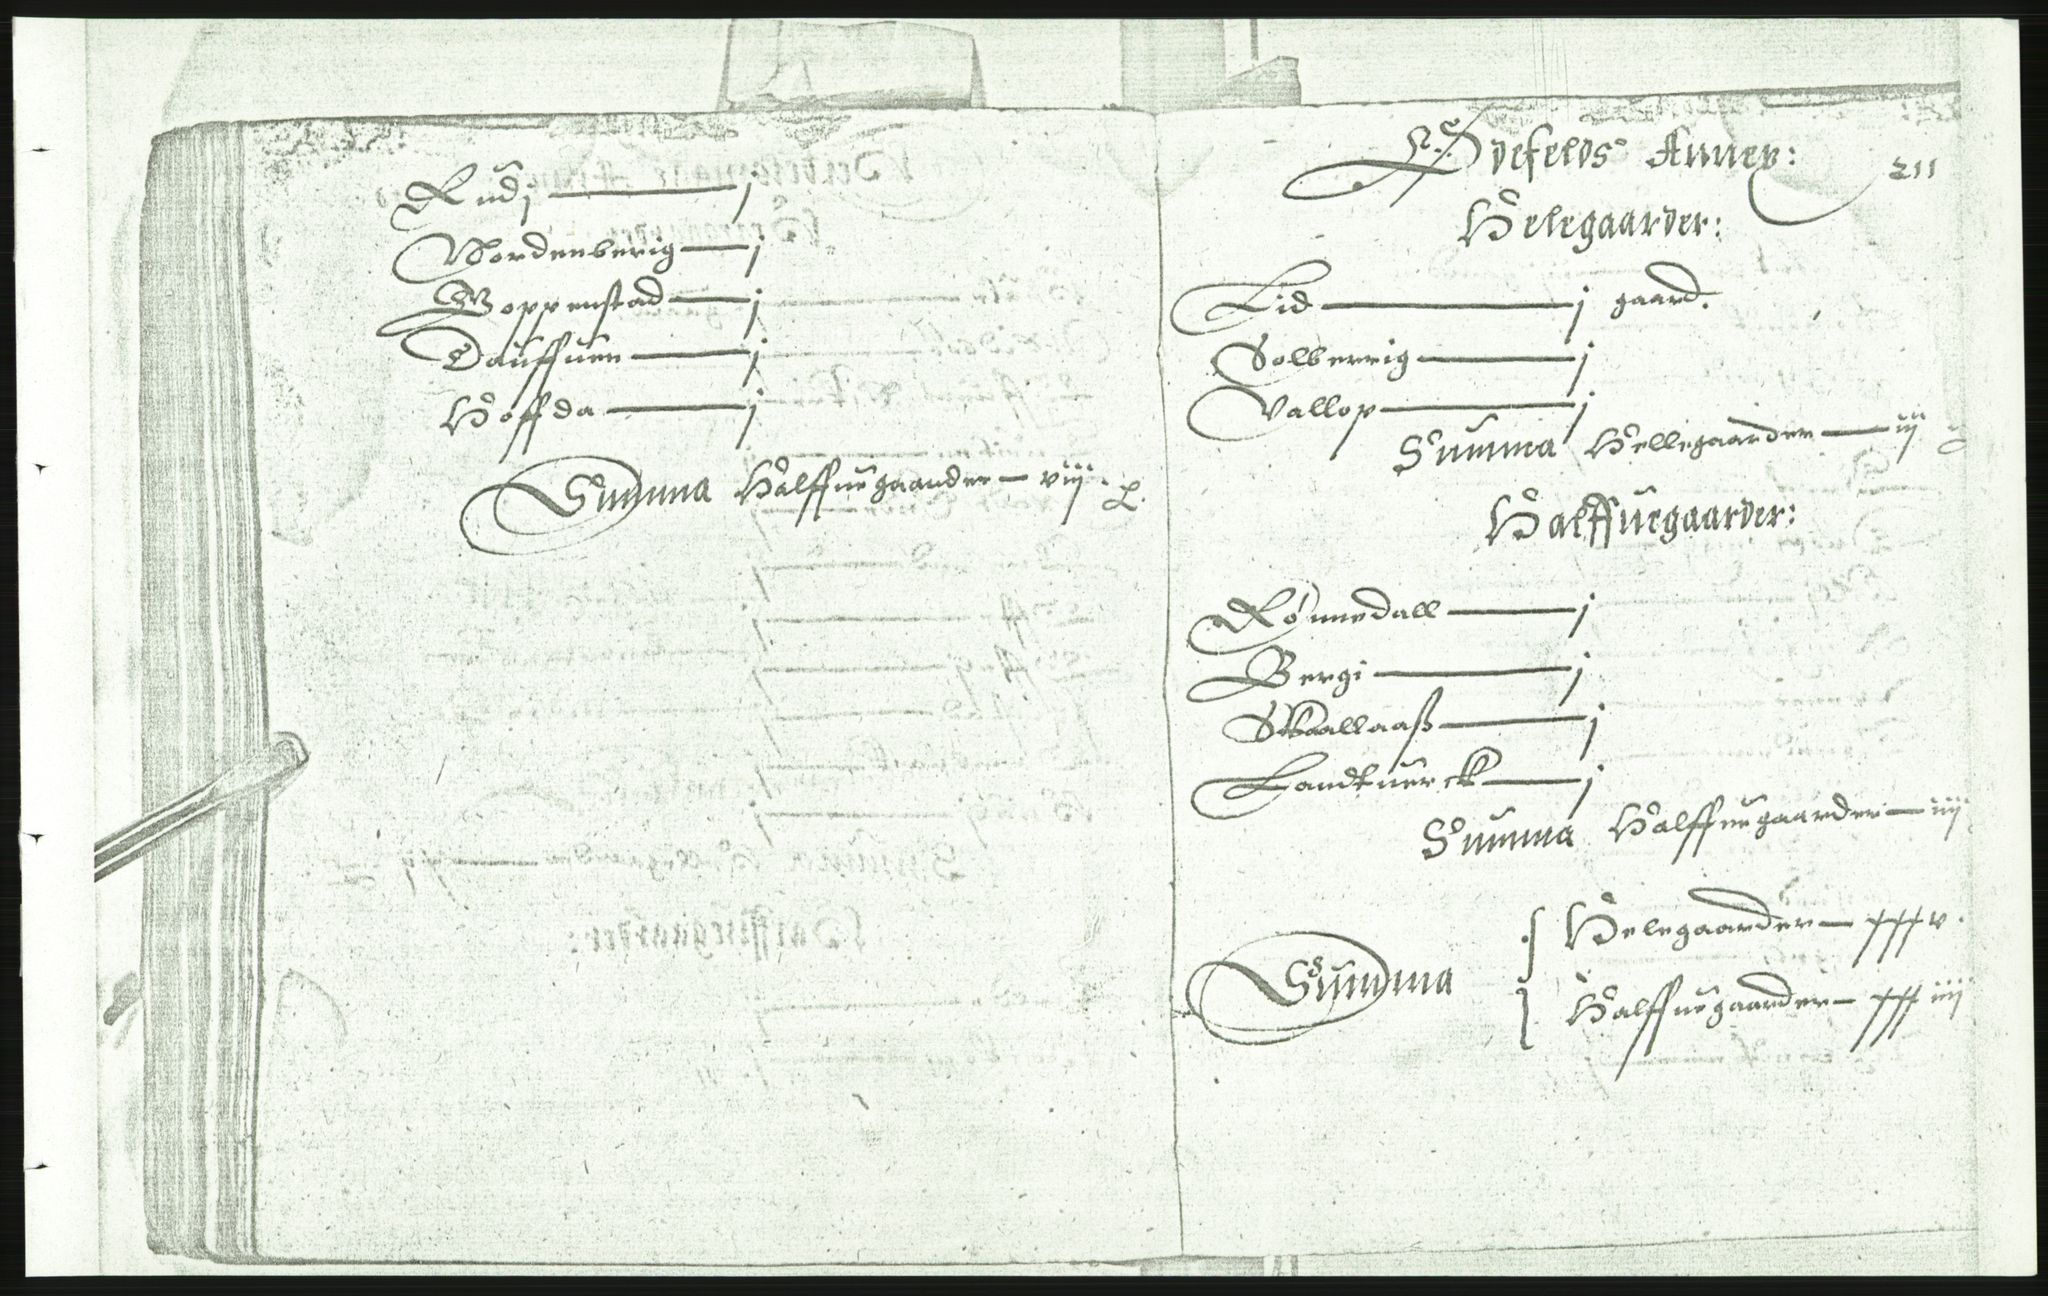 Rudj — j
Nordenberig — j
Goppenstad — j
Dauffuen — j
Hoffda — j
Summa Halffuegaarder — viij
Ødefelds Annex:
211
Helegaarder:
Lid — j gaard.
Solberrig — j
Vallop — j
Summa Hellegaarder — iij
Halffuegaarder:
Rønnedall — j
Bergi — j
Skaallaaß — j
Landtuerck — j
Summa Halffuegaarder — iiij
Summa { Helegaarder — xxxv.
Halffuegaarder — xxxiiij